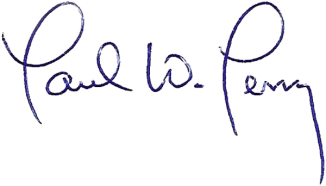 Paul W. Perry